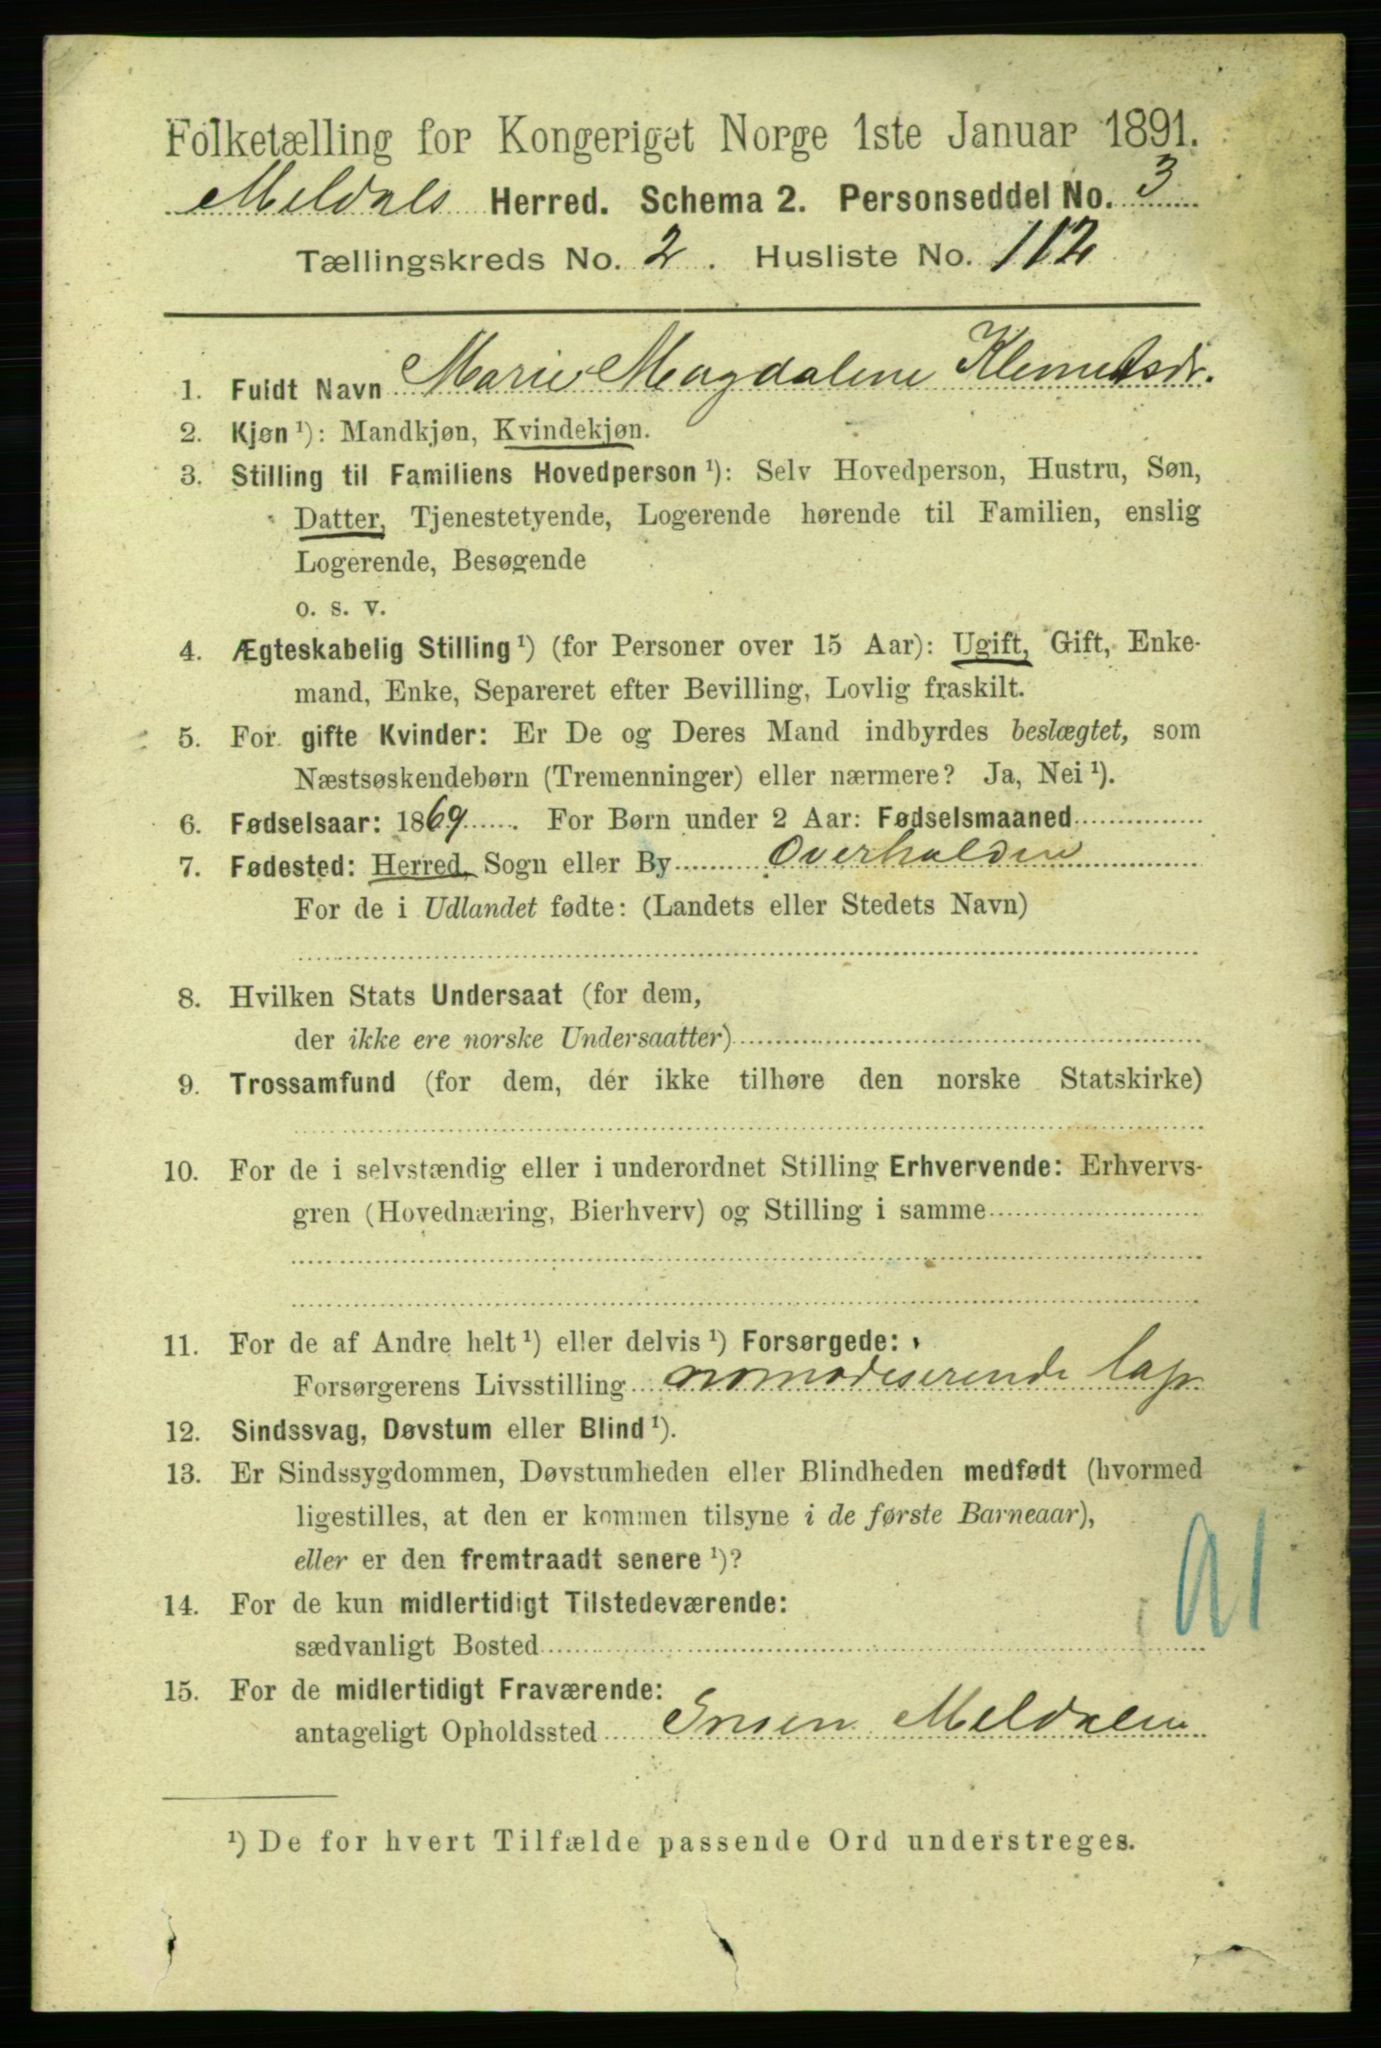 Folketælling for Kongeriget Norge 1ste Januar 1891.
Meldals Herred. Schema 2. Personseddel No. 3
Tællingskreds No. 2. Husliste No. 112
1. Fuldt Navn Marie Magdalene Klemetsdr.
2. Kjøn ¹): Mandkjøn, Kvindekjøn.
3. Stilling til Familiens Hovedperson ¹): Selv Hovedperson, Hustru, Søn,
Datter, Tjenestetyende, Logerende hørende til Familien, enslig
Logerende, Besøgende
o. s. v.
4. Ægteskabelig Stilling ¹) (for Personer over 15 Aar): Ugift, Gift, Enke-
mand, Enke, Separeret efter Bevilling, Lovlig fraskilt.
5. For gifte Kvinder: Er De og Deres Mand indbyrdes beslægtet, som
Næstsøskendebørn (Tremenninger) eller nærmere? Ja, Nei ¹).
6. Fødselsaar: 1869. For Børn under 2 Aar: Fødselsmaaned
7. Fødested: Herred, Sogn eller By Overhalden
For de i Udlandet fødte: (Landets eller Stedets Navn)
8. Hvilken Stats Undersaat (for dem,
der ikke ere norske Undersaatter)
9. Trossamfund (for dem, der ikke tilhøre den norske Statskirke)
10. For de i selvstændig eller i underordnet Stilling Erhvervende: Erhvervs-
gren (Hovednæring, Bierhverv) og Stilling i samme
11. For de af Andre helt ¹) eller delvis ¹) Forsørgede:
Forsørgerens Livsstilling nomadeserende lap
12. Sindssvag, Døvstum eller Blind ¹).
13. Er Sindssygdommen, Døvstumheden eller Blindheden medfødt (hvormed
ligestilles, at den er kommen tilsyne i de første Barneaar),
eller er den fremtraadt senere ¹)?
14. For de kun midlertidigt Tilstedeværende:
sædvanligt Bosted
15. For de midlertidigt Fraværende:
antageligt Opholdssted Meldalen
¹) De for hvert Tilfælde passende Ord understreges.